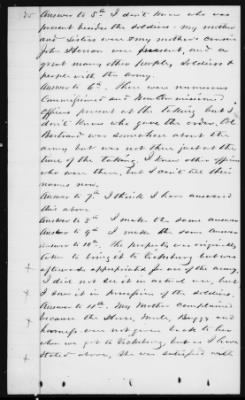 25 Answer to 5th I don't know who was
present besides the soldiers - my mother
and sisters were & my mother's cousin
John were present, and a
great many other people, soldiers &
people with the army.
Answer to 6th. There were numerous
Commissioned and Non Commissioned
officers present at the taking but I
don't know who gave the order, Col
was somewhere about the
army but was not there just at the
time of the taking. I knew other officers
who were there, but I can't tell their
names now.
Answer to 7th I think I have answered
this above
Answer to 8th I make the same answer
Answer to 9th I make the same answer
Answer to 10th. The property was originally
taken to bring us to Vicksburg but was
afterwards appropriated for use of the army.
I did not see it in actual use, but
I saw it in possession of the soldiers.
Answer to 11th. My Mother complained
because the Horse, Mule, Buggy and
harness were not given back to her
when we got to Vicksburg but as I have
stated above, She was satisfied with